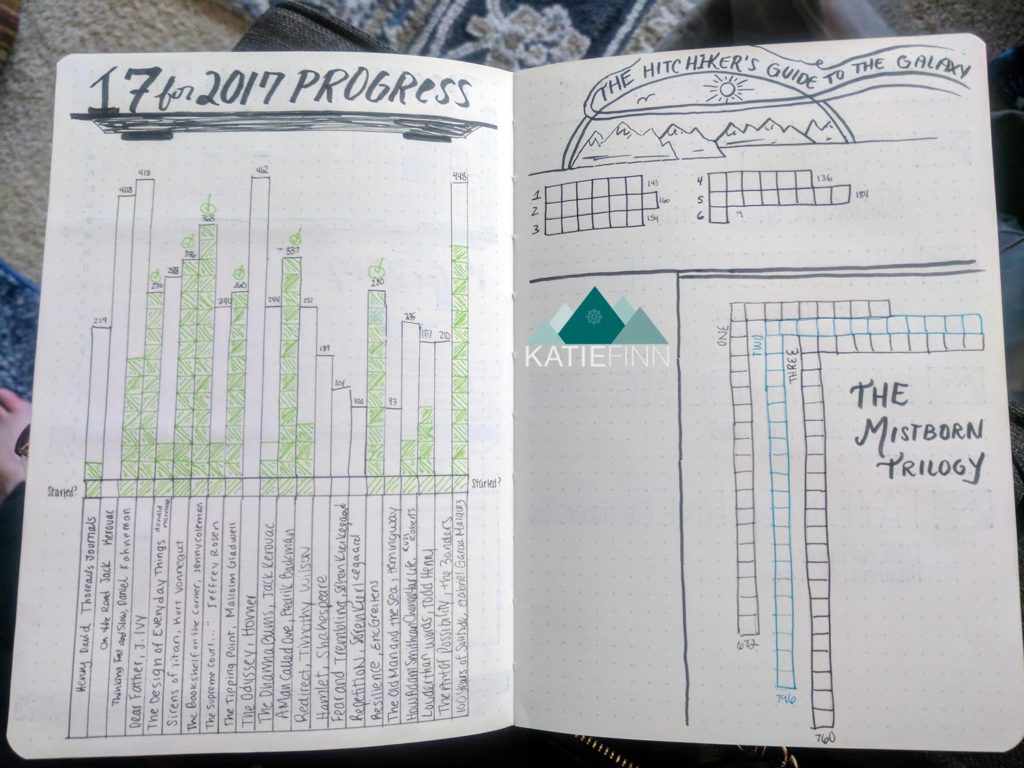 17 for 2017 PROGRESS
219
408
418
288
368
240
462
244
337
252
189
100
280
93
187
210
448
Started?
Started?
Henry David Thoreau's Journals
On the Road Jack Kerouac
Thinking Fast and Slow, Daniel Kahneman
Dear Father, J. IVY
The Design of Everyday Things Donald Norman
Sirens of Titan, Kurt Vonnegut
The Bookshelf on the Corner, Jenny Coleman
The Supreme Court... Jeffrey Rosen
The Tipping Point, Malcolm Gladwell
The Odyssey, Homer
The Dharma Bums, Jack Kerouac
A Man Called Ove, Fredrik Backman
Redirect, Timothy Wilson
Hamlet, Shakespeare
Fear and Trembling, Søren Kierkegaard
Repetition, Søren Kierkegaard
Resilience, Eric Greitens
The Old Man and the Sea, Hemingway
How Adam Smith can Change Your Life, Russ Roberts
Louder than Words, Todd Henry
The Art of Possibility, the Zanders
100 Years of Solitude, Gabriel Garcia Marquez
THE HITCHIKER'S GUIDE TO THE GALAXY
1 143
2 160
3 154
4 136
5 184
6 ?
KATIEFINN
ONE
TWO
THREE
THE
MISTBORN
TRILOGY
672
796
760